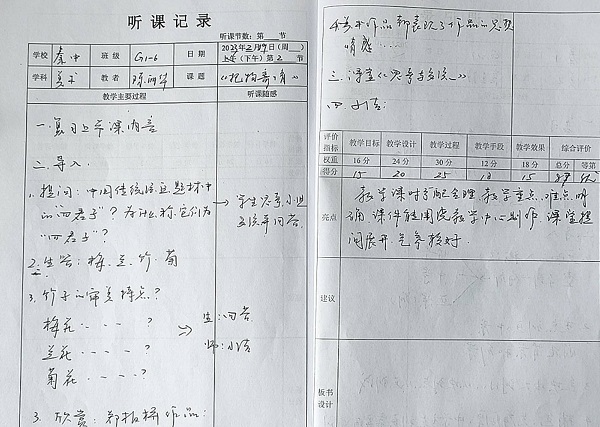 听课记录
听课节数：第 节
学校 秦中 班级 G1-6 日期 2023年2月9日（周 ）
上午（下午）第2节
学科 美术 教者 课题 《托物寄情》
教学主要过程 听课随感
一、复习上节课内容
二、导入.
1. 提问：中国传统绘画题材中
的"四君子"？为什么称它们为
"四君子"？
学生思考，小组
交流并回答.
2. 生答：梅、兰、竹、菊
3. 竹子的审美特点？
梅花 - - - - ？
兰花 - - - - ？
菊花 - - - - ？
生：回答
师：小结
3. 欣赏：郑板桥作品：
作品都表现了作品的思想
情感……
三、课堂《思考与交流》
四、小结：
评价指标 教学目标 教学设计 教学过程 教学手段 教学效果 综合评价
权重 16分 24分 30分 12分 18分 总分 等第
得分 15 20 25 15 优
亮点
教学课时分配合理，教学重点、难点明
确，课件能围绕教学中心制作，课堂提
问展开
建议
板书
设计